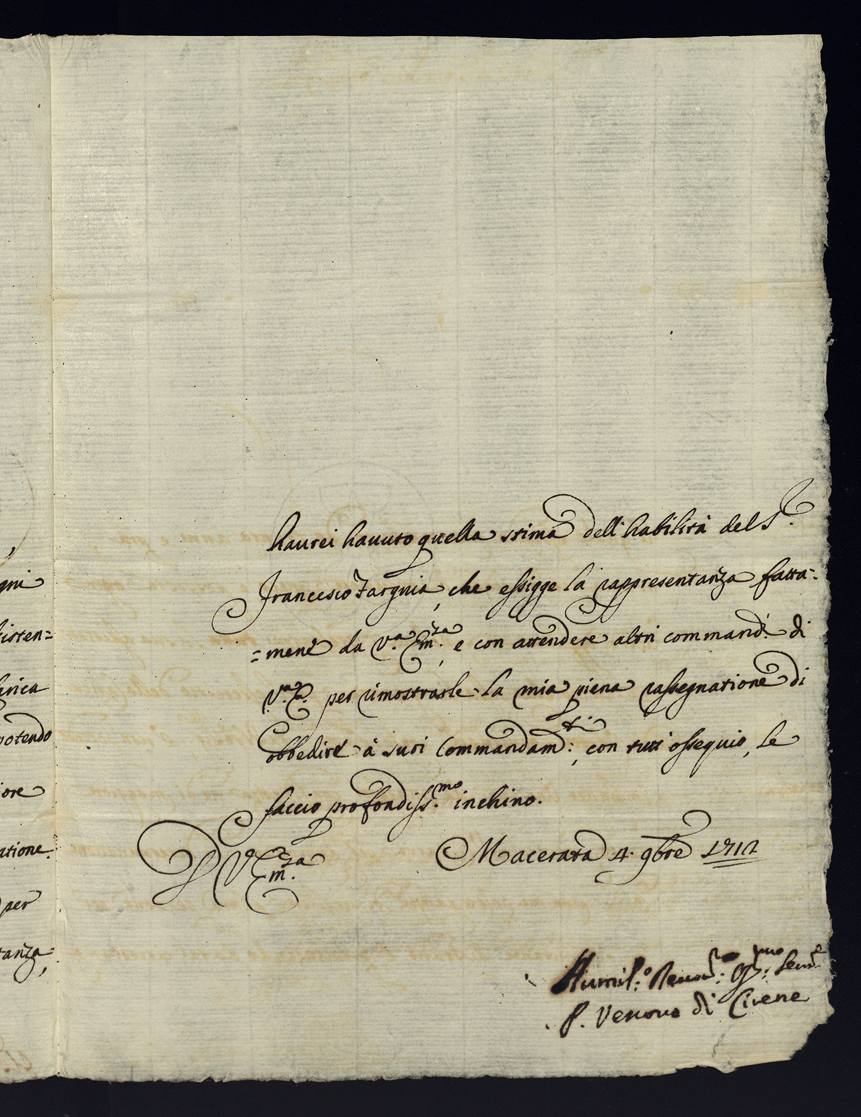 gni
sisten=
arica
potendo
iore
atione
per
tanza,
haurei hauuto quella stima dell'habilità del S.r
Francesco Zargnia, che essigge la rappresentanza fatta-
=mene da V.a Em.za, e con attendere altri command.i di
V.a E.za per rimostrarle la mia piena rassegnatione di
obbedire à suoi Commandam.ti: con tutt'ossequio, le
faccio profondiss.mo inchino.
D V Em.za Macerata 4. 9bre 1712
Humil.o Deuot.mo: Oss.mo: Seru.e
P. Vescouo di Cirene